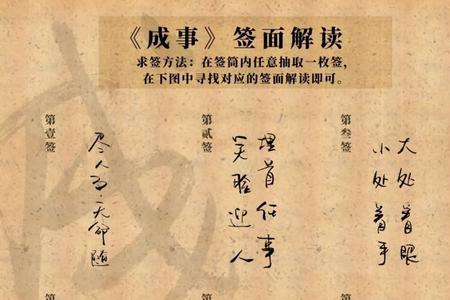 《成事》签面解读
求签方法：在签筒内任意抽取一枚签，
在下图中寻找对应的签面解读即可。
第壹签
尽人事天命随
第贰签
埋首任事
笑脸迎人
第叁签
大处着眼
小处着手